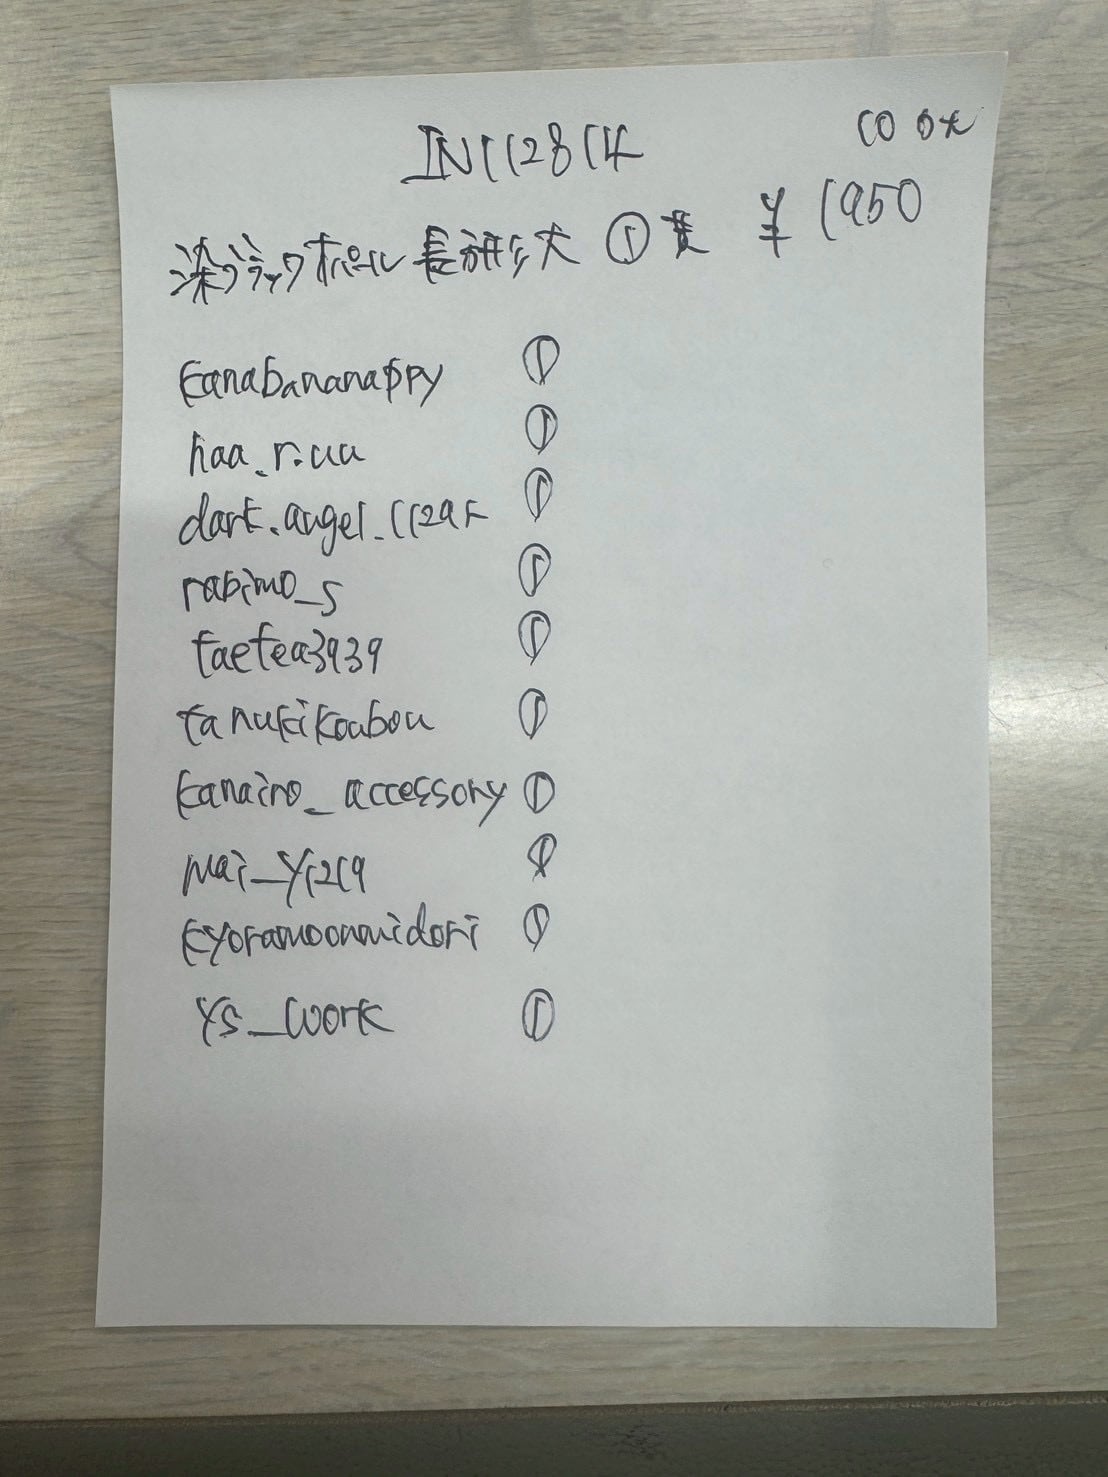 IN112814
染ブラックオパール 長 大 ① 黄 ¥1950
kanabananappy ①
haa_r.uu ①
dark.angel_1129 ①
rabimo_s ①
taetea3939 ①
tanukikoubou ①
kanairo_accessory ①
mai_y1219 ①
kyoramoonmidori ①
ys_work ①